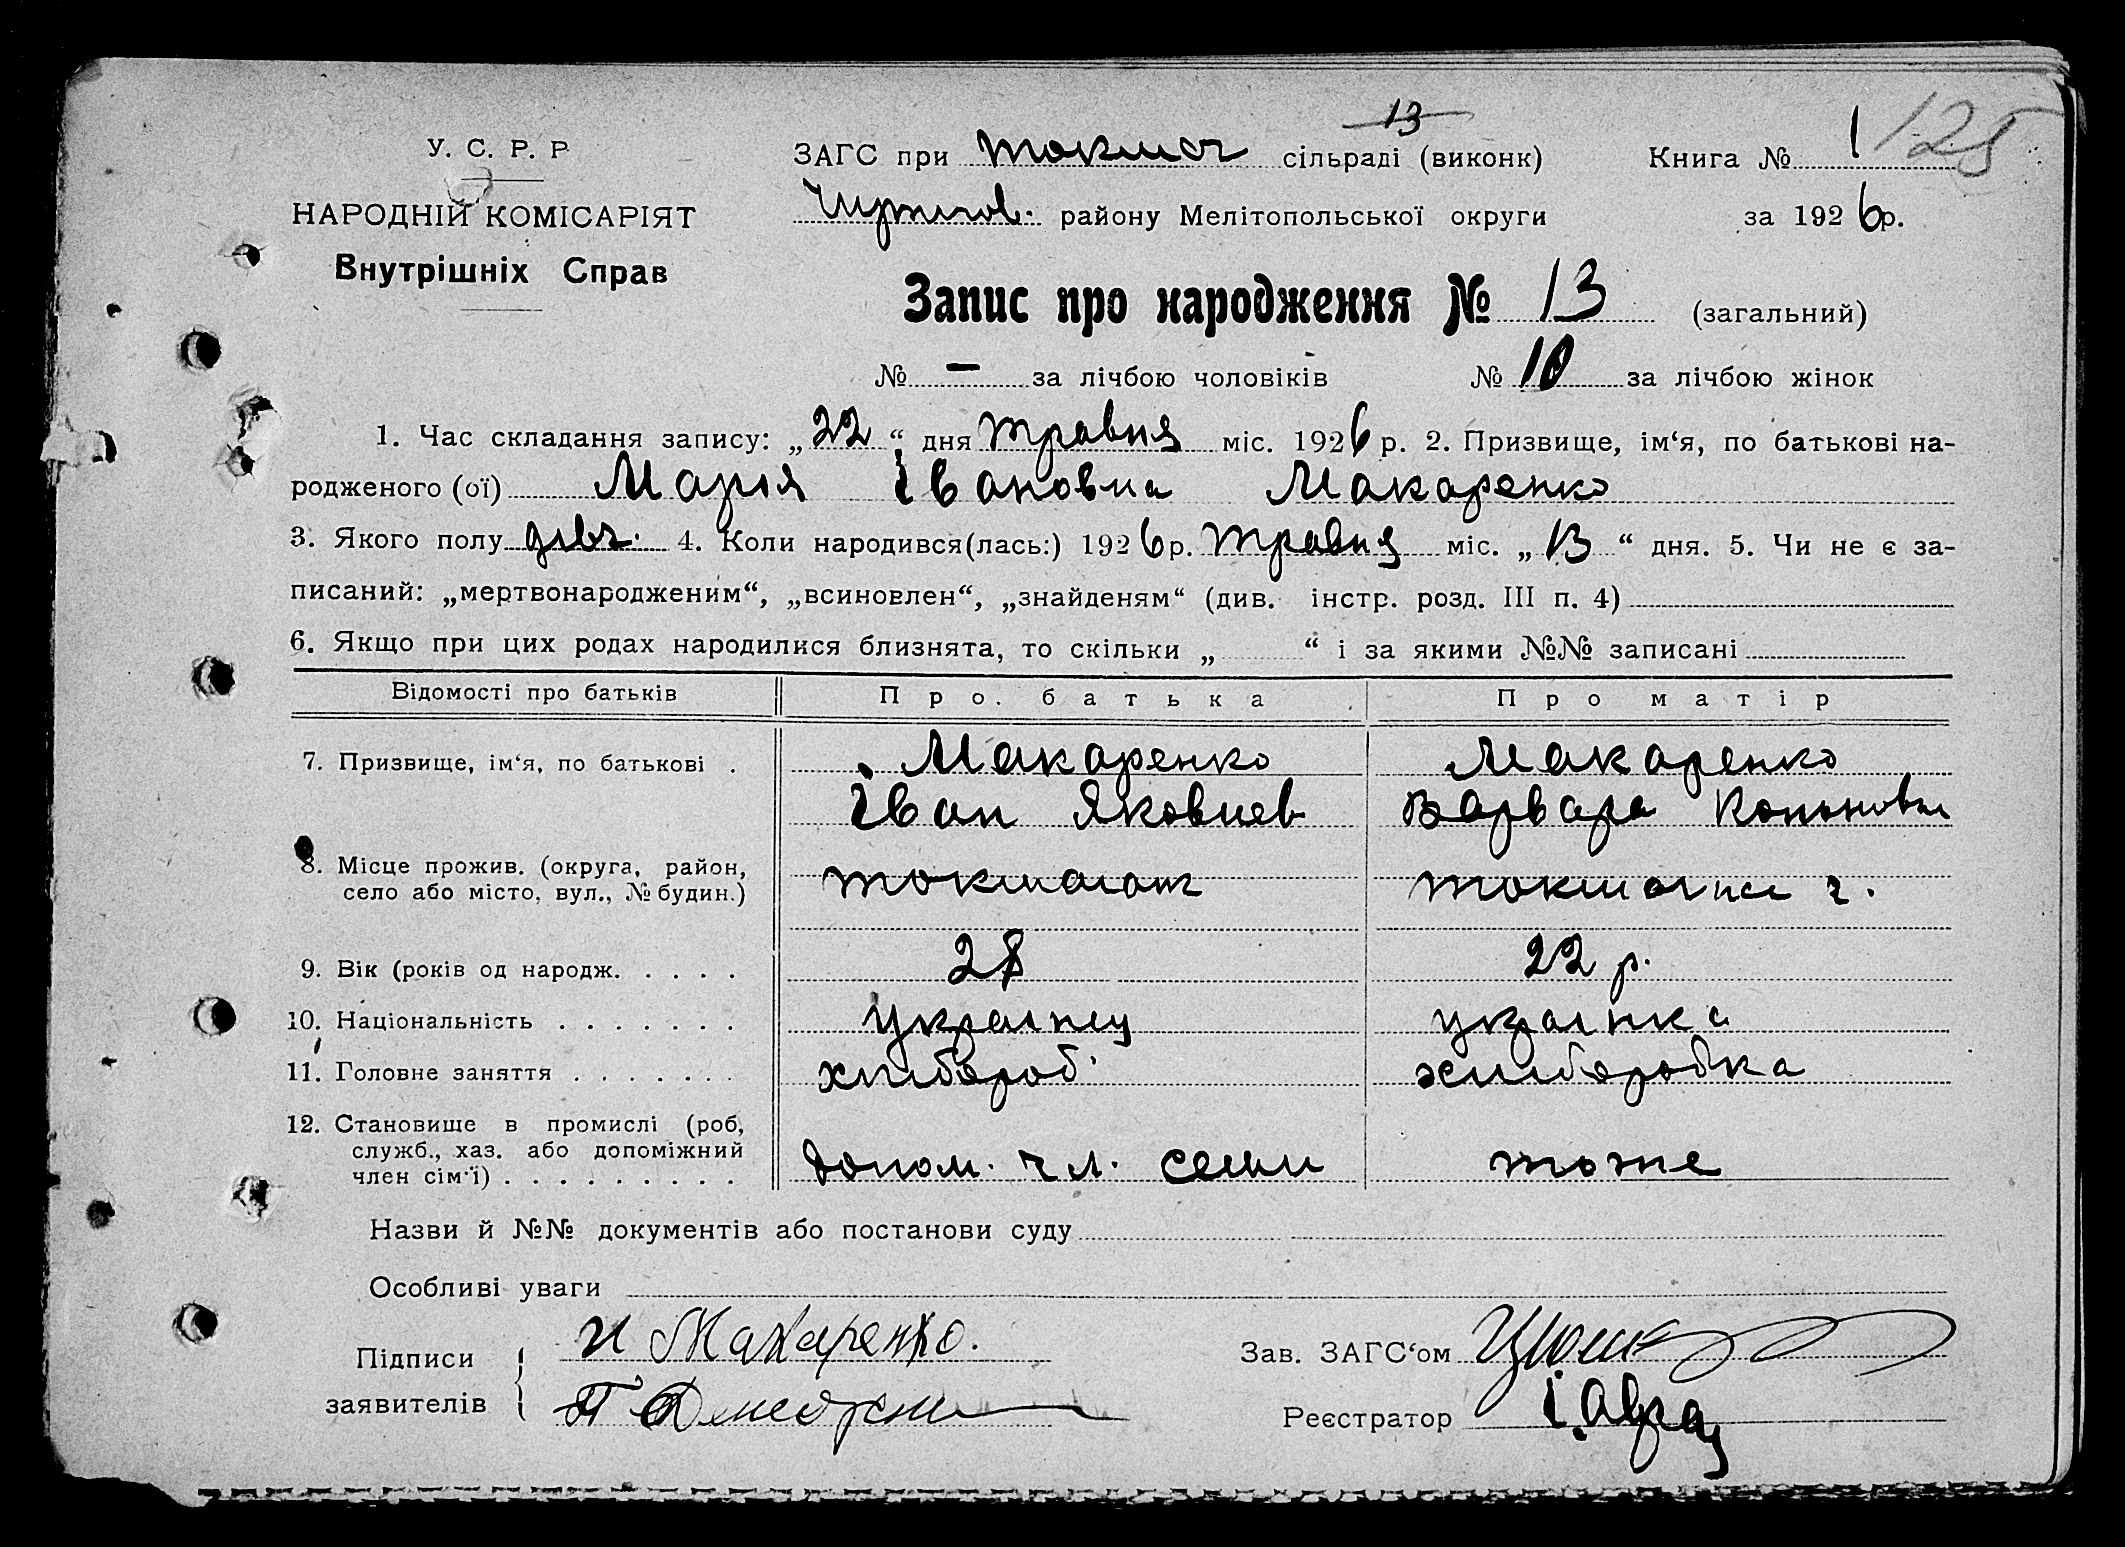 13
125
У. С. Р. Р
НАРОДНІЙ КОМІСАРІЯТ
Внутрішніх Справ
ЗАГС при Токмач сільраді (виконк)
Книга № 1
району Мелітопольської округи
за 1926 р.
Запис про народження № 13 (загальний)
№ — за лічбою чоловіків № 10 за лічбою жінок
1. Час складання запису: „22“ дня Травня міс. 1926 р. 2. Призвище, ім‘я, по батькові на-
родженого (ої) Марія Івановна Макаренко
3. Якого полу дівч. 4. Коли народився(лась:) 1926 р. Травня міс. „13“ дня. 5. Чи не є за-
писаний: „мертвонародженим“, „всиновлен“, „знайденям“ (див. інстр. розд. III п. 4)
6. Якщо при цих родах народилися близнята, то скільки „ “ і за якими №№ записані
Відомості про батьків Про батька Про матір
7. Призвище, ім‘я, по батькові . Макаренко Макаренко
Іван Яковлев Варвара
8. Місце прожив. (округа, район,
село або місто, вул., № будин.)
9. Вік (років од народж. . . . . 28 22 р.
10. Національність . . . . . . . українец українка
11. Головне заняття . . . . . . . хлібороб хліборобка
12. Становище в промислі (роб,
служб., хаз. або допоміжний
член сім‘ї) . . . . . . . . . допом. чл. семьи тоже
Назви й №№ документів або постанови суду
Особливі уваги
Підписи
заявителів
И Макаренко.
Зав. ЗАГС‘ом
Реєстратор